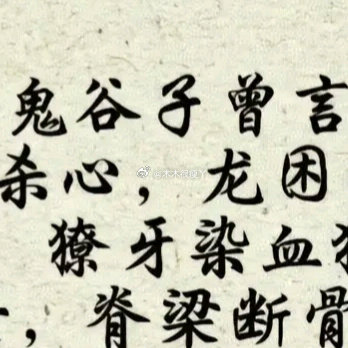 鬼谷子曾言
杀心，龙困
獠牙染血
，脊梁断骨